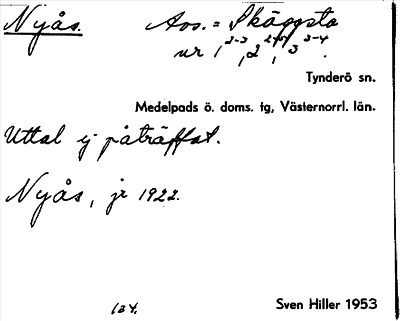 Nyås. Avs. = Skäggsta
nr 1²⁻³, 2²⁻⁵, 3³⁻⁴.
Tynderö sn.
Medelpads ö. doms. tg, Västernorrl. län.
Uttal ej påträffat.
Nyås, jr 1922.
134. Sven Hiller 1953